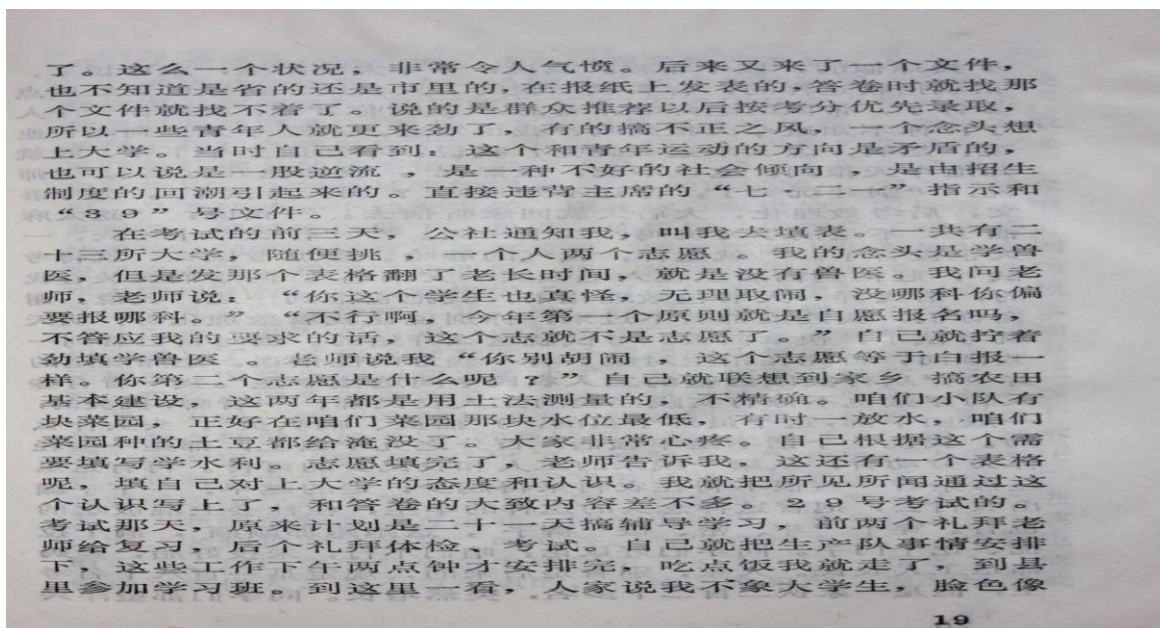 了。这么一个状况，非常令人气愤。后来又来了一个文件，
也不知道是省的还是市里的，在报纸上发表的，答卷时就找那
个文件就找不着了。说的是群众推荐以后按考分优先录取，
所以一些青年人就更来劲了，有的搞不正之风，一个念头想
上大学。当时自己看到：这个和青年运动的方向是矛盾的，
也可以说是一股逆流，是一种不好的社会倾向，是由招生
制度的回潮引起来的。直接违背主席的“七·二一”指示和
“39”号文件。
在考试的前三天，公社通知我，叫我去填表。一共有二
十三所大学，随便挑，一个人两个志愿。我的念头是学兽
医，但是发那个表格翻了老长时间，就是没有兽医。我问老
师，老师说：“你这个学生也真怪，无理取闹，没哪科你偏
要报哪科。”“不行啊，今年第一个原则就是自愿报名吗，
不答应我的要求的话，这个志就不是志愿了。”自己就拧着
劲填学兽医。老师说我“你别胡闹，这个志愿等于白报一
样。你第二个志愿是什么呢？”自己就联想到家乡搞农田
基本建设，这两年都是用土法测量的，不精确。咱们小队有
块菜园，正好在咱们菜园那块水位最低，有时一放水，咱们
菜园种的土豆都给淹没了。大家非常心疼。自己根据这个需
要填写学水利。志愿填完了，老师告诉我，这还有一个表格
呢，填自己对上大学的态度和认识。我就把所见所闻通过这
个认识写上了，和答卷的大致内容差不多。29号考试的。
考试那天，原来计划是二十一天搞辅导学习，前两个礼拜老
师给复习，后个礼拜体检、考试。自己就把生产队事情安排
下，这些工作下午两点钟才安排完，吃点饭我就走了，到县
里参加学习班。到这里一看，人家说我不象大学生，脸色像
19